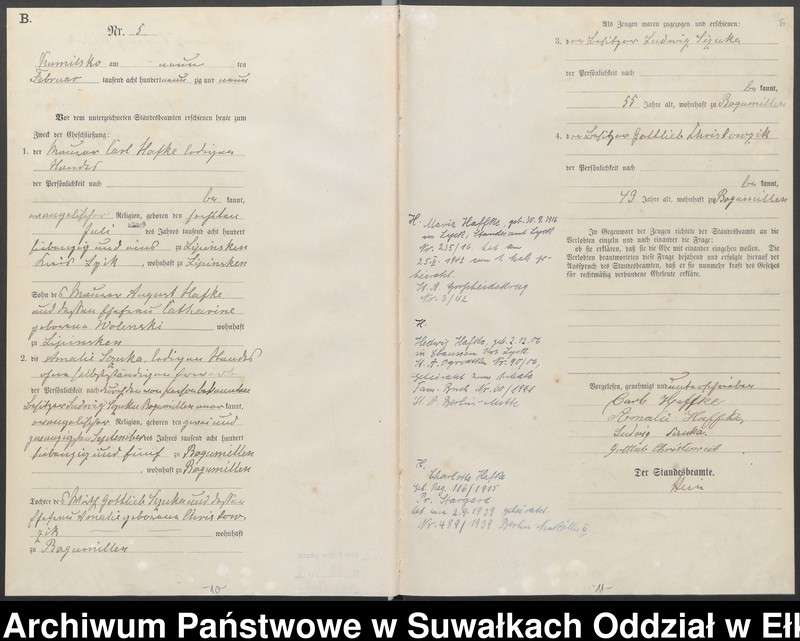 B.
Nr. 5
Kumilsko am neun ten
Februar tausend acht hundert neun zig und neun
Vor dem unterzeichneten Standesbeamten erschienen heute zum
Zweck der Eheschließung:
1. der Maurer Carl Hafke ledigen
Standes
der Persönlichkeit nach
be kannt,
evangelischer Religion, geboren den sechsten
Juli des Jahres tausend acht hundert
siebenzig und eins zu Lipinsken
Kreis Lyck, wohnhaft zu Lipinsken
Sohn des Maurer August Hafke
und dessen Ehefrau Catharine
geborene Wolenski wohnhaft
zu Lipinsken
2. die Amalie Szuka, ledigen Standes
ohne selbstständigen
der Persönlichkeit nach durch den von Person bekannten
Besitzer Ludwig Szuka Bogumillen aner kannt,
evangelischer Religion, geboren den zwei und
zwanzigsten September des Jahres tausend acht hundert
siebenzig und fünf zu Bogumillen
, wohnhaft zu Bogumillen
Tochter des Wirth Gottlieb Szuka und dessen
Ehefrau Amalie geborene Christow
zik wohnhaft
zu Bogumillen
-10-
Als Zeugen waren zugezogen und erschienen:
3. der Besitzer Ludwig Szuka
der Persönlichkeit nach
be kannt,
55 Jahre alt, wohnhaft zu Bogumillen
4. der Besitzer Gottlieb Christowzik
der Persönlichkeit nach
be kannt,
49 Jahre alt, wohnhaft zu Bogumillen
In Gegenwart der Zeugen richtete der Standesbeamte an die
Verlobten einzeln und nach einander die Frage:
ob sie erklären, daß sie die Ehe mit einander eingehen wollen. Die
Verlobten beantworteten diese Frage bejahend und erfolgte hierauf der
Ausspruch des Standesbeamten, daß er sie nunmehr kraft des Gesetzes
für rechtmäßig verbundene Eheleute erkläre.
H. Marie Haffke, geb. 30.9.1916
in Lyck, Standesamt Lyck
Nr. 235/16, hat am
1942 zum 1. Mal ge-
heiratet.
St. A.
Nr. 3/42
H.
Hedwig Hafke, geb. 2.12.06
in Krs. Lyck
St. A. Ogrodtken Nr. 95/06,
geheiratet zum
Fam. Buch Nr. 1941
St. A. Berlin-Mitte
H. Charlotte Hafke
geb. Reg. 116/1905
Pr. Stargard
hat am 2.9.1939 geheiratet.
Nr. 489/1939 Berlin-Neukölln
Vorgelesen, genehmigt und unterschrieben
Carl Haffke
Amalie Haffke
Ludwig Szuka.
Gottlieb
Der Standesbeamte.
Hein
-11-
Archiwum Państwowe w Suwałkach Oddział w Eł